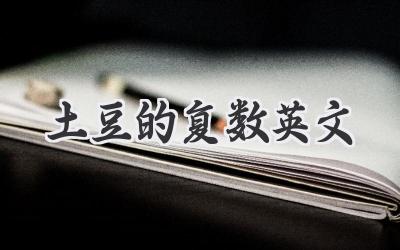 土豆的复数英文